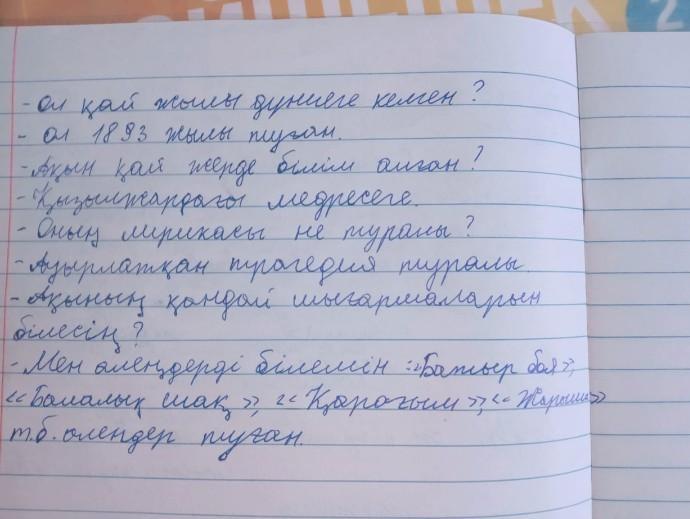 2
- Ол қай жылы дүниеге келген?
- Ол 1893 жылы туған.
- Ақын қай жерде білім алған?
- Қызылжардағы медресеге.
- Оның лирикасы не тураны?
- Ауырлатқан трагедия туралы.
- Ақының қандай шығармаларын
білесің?
- Мен өлеңдерді білемін: «Батыр боя»,
«Балалық шақ», «Қарағым», «Жарыма»
т.б. олендер туған.